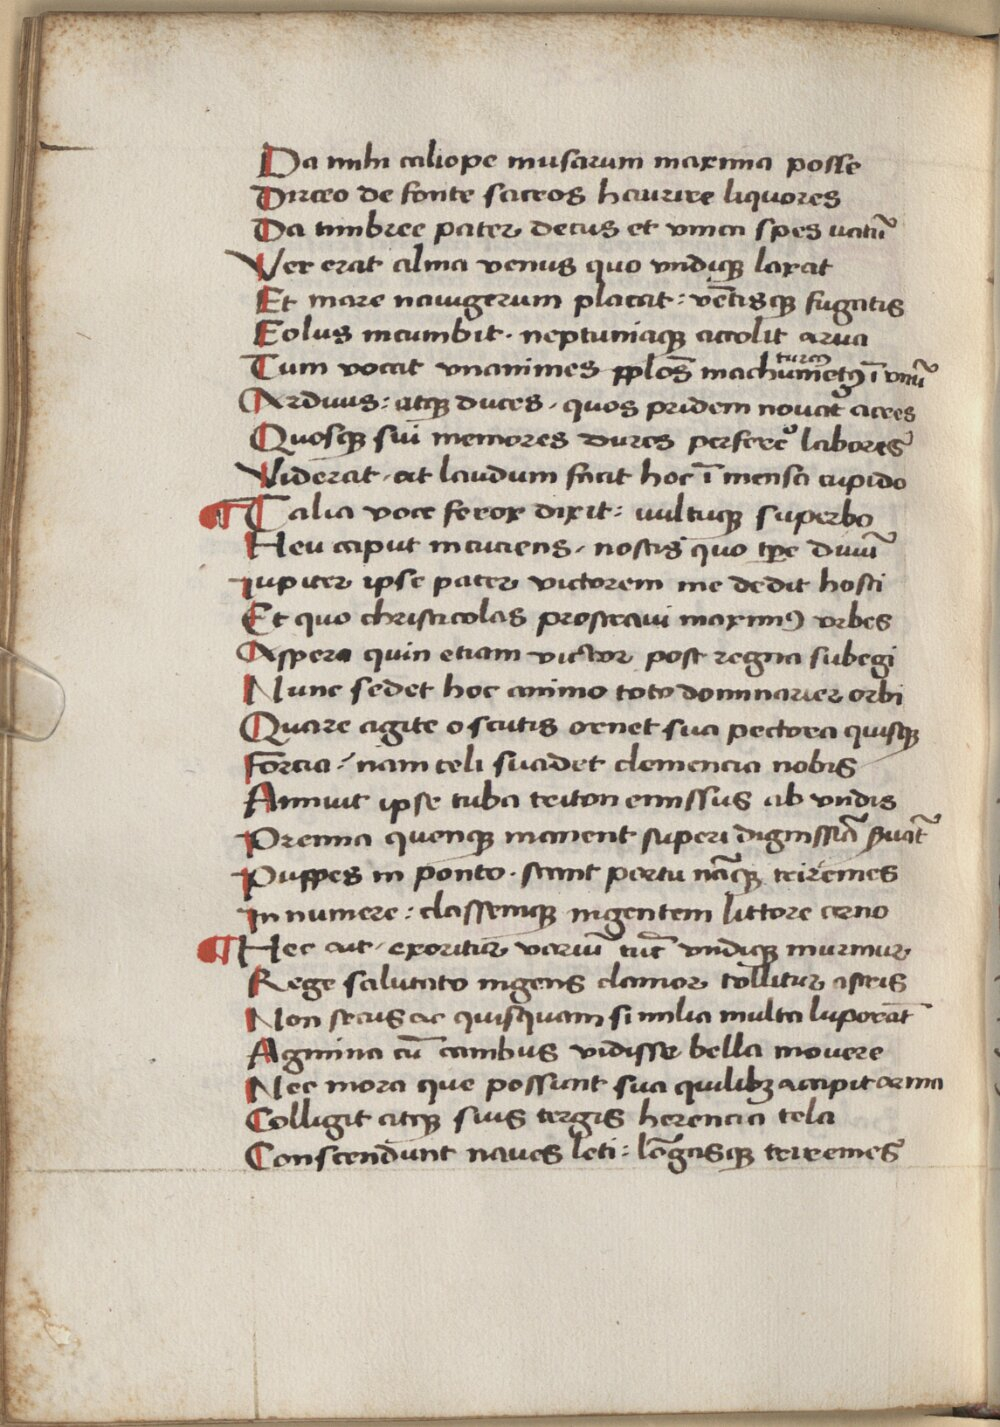 Da mihi caliope musarum maxima posse
Dirceo de fonte sacros haurire liquores
Da timbree pater decus et unica spes uatū
Ver erat alma venus quo vndiqȝ laxat
Et mare nauigerum placat : vētisqȝ fugatis
Eolus incumbit . neptuniaqȝ accolit arua
turcꝰ
Tum vocat vnanimes pplōs machumetꝰ ī vnū
Arduus : atqȝ duces . quos pridem nouat acres
Quosqȝ sui memores dures perferrº labores
Viderat . at laudum facit hoc īmensa cupido
¶ Talia voce ferox dixit : uultuqȝ superbo
Heu caput incuciens . nostis quo tpre diuū
iupiter ipse pater victorem me dedit hosti
Et quo christicolas prostraui maximꝰ vrbes
Aspera quin etiam victor post regna subegi
Nunc sedet hoc animo toto dominarier orbi
Quare agite o scutis ornet sua pectora quisqȝ
Forcia : nam celi suadet clemencia nobis
Annuit ipse tuba triton emissus ab vndis
Premia quenqȝ manent superi dignissīa
Puppes in ponto . stant portu nācqȝ triremes
In numere : classemqȝ ingentem littore cerno
¶ Hec ait . exoritur variū tūc vndiqȝ murmur
Rege salutato ingens clamor tollitur astris
Non secus ac quisquam similia multa luporāt
Agmina cū canibus vidisse bella mouere
Nec mora que possunt sua quilibȝ accipit arma
Colligit atqȝ suis tergis herencia tela
Conscendunt naues leti : lōgasqȝ triremes